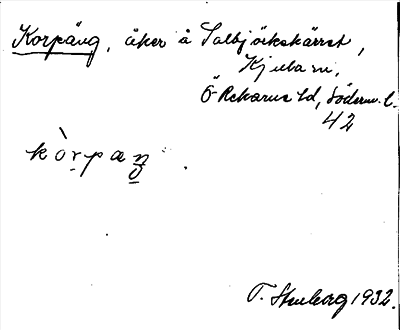 Korpäng, åker å Salbjörkskärret,
Kjula sn,
Ö Rekarne hd, Söderm. l.
42
kòrpaŋ.
T. Stenborg 1932.